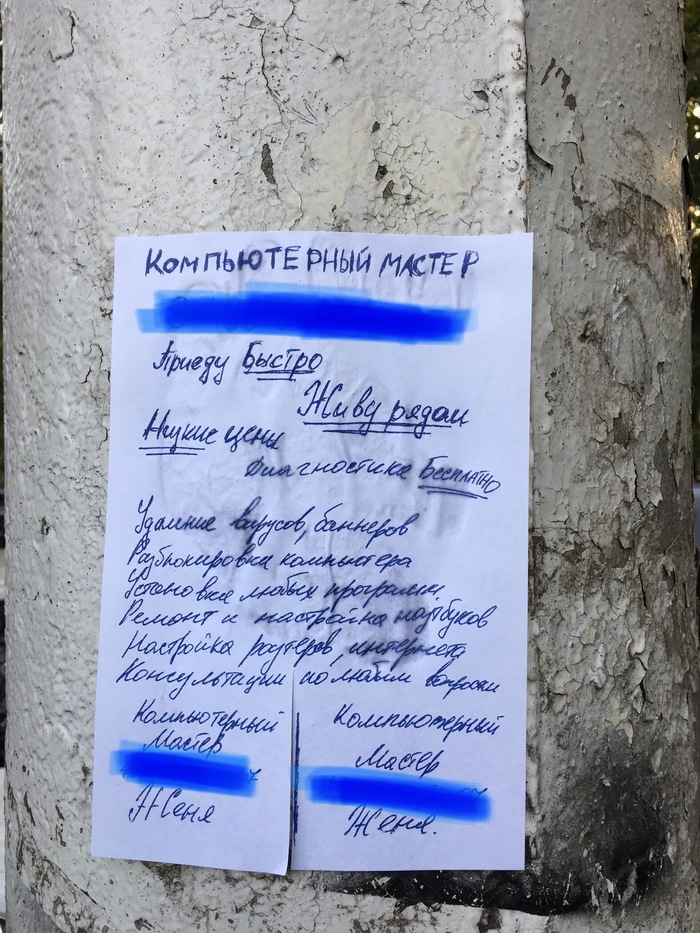 КОМПЬЮТЕРНЫЙ МАСТЕР
Приеду Быстро
Живу рядом
Низкие цены
Диагностика Бесплатно
Удаление вирусов, баннеров
Разблокировка компьютера
Установка любых программ.
Ремонт и настройка ноутбуков
Настройка роутеров, интернета
Консультации по любым вопросам
Компьютерный
Мастер
Женя
Компьютерный
Мастер
Женя.